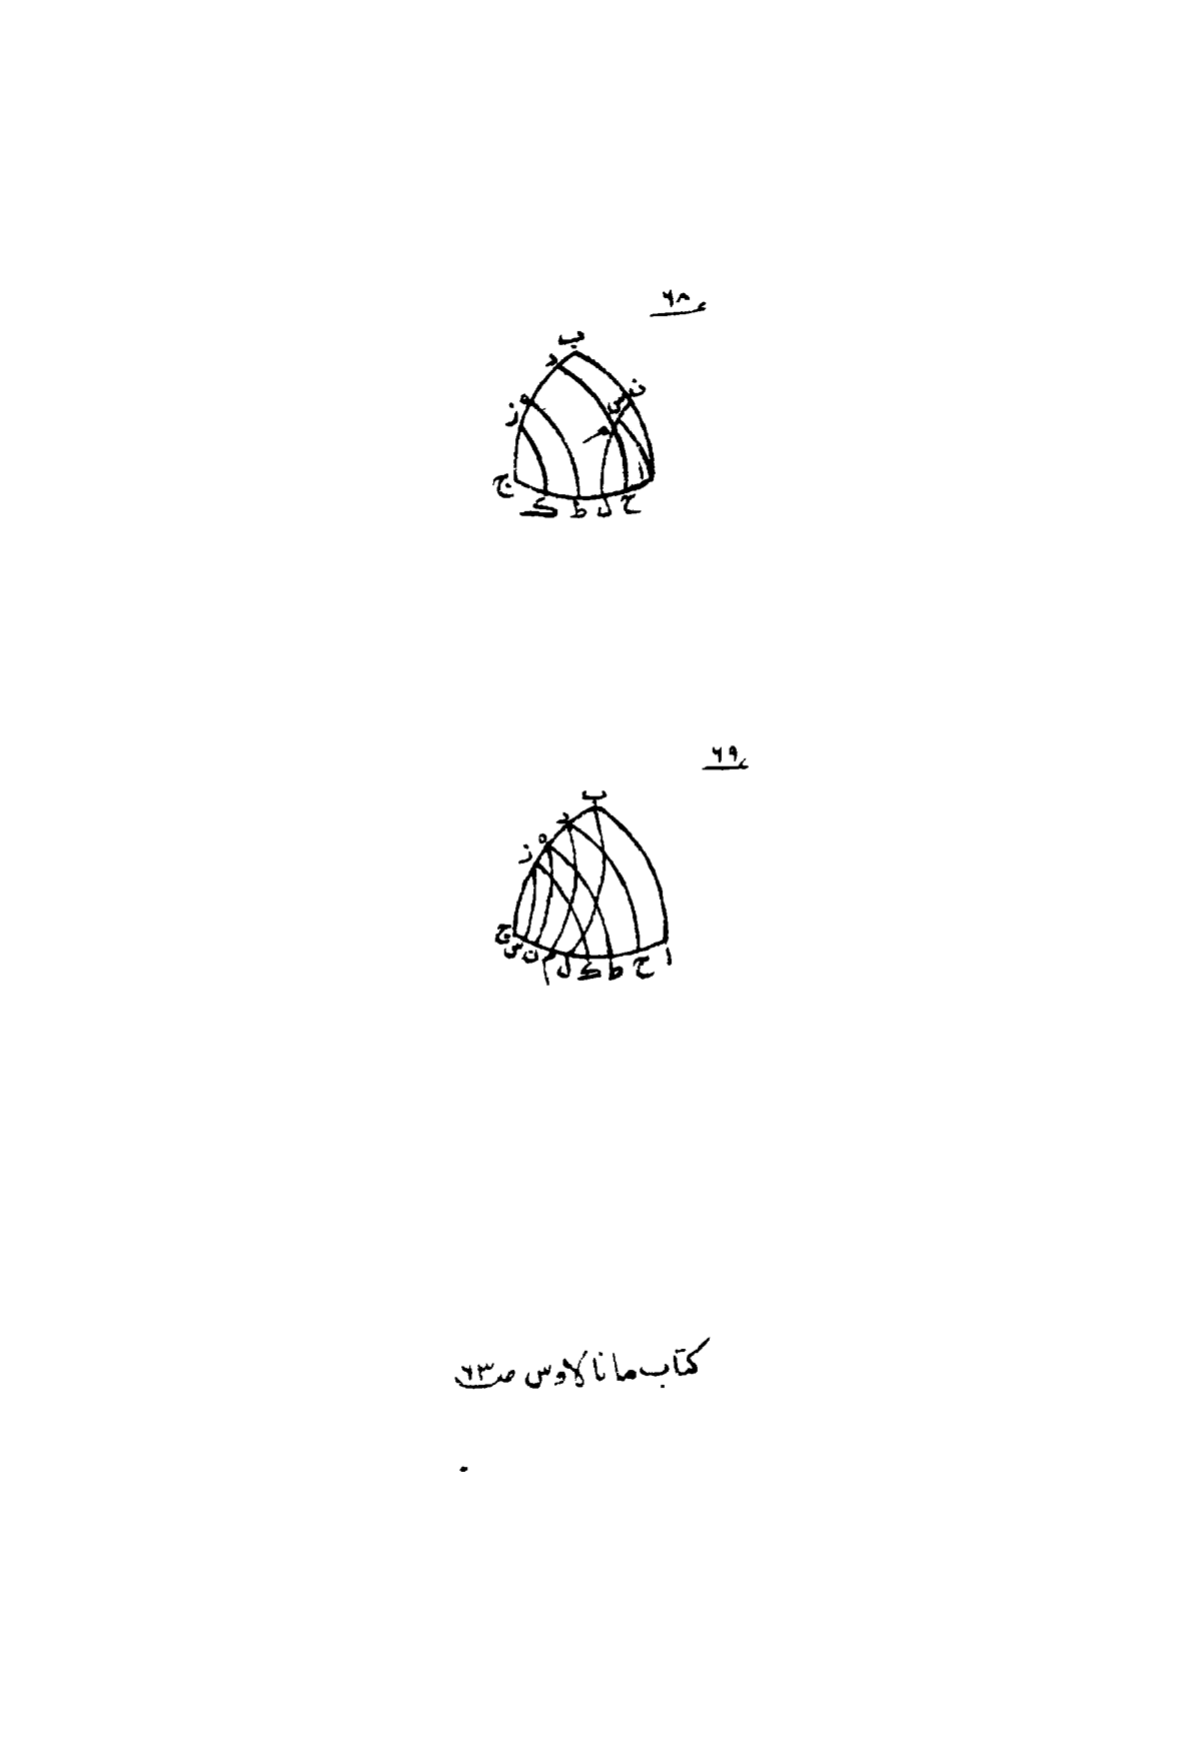 ٦٨
ب
د
ن
ه
س
ز
م
ا
ج
ك ط ل ح
٦٩
ب
د
ه
ز
ج
س ن م ل ك ط ح ا
كتاب مانالاوس ص ٦٣